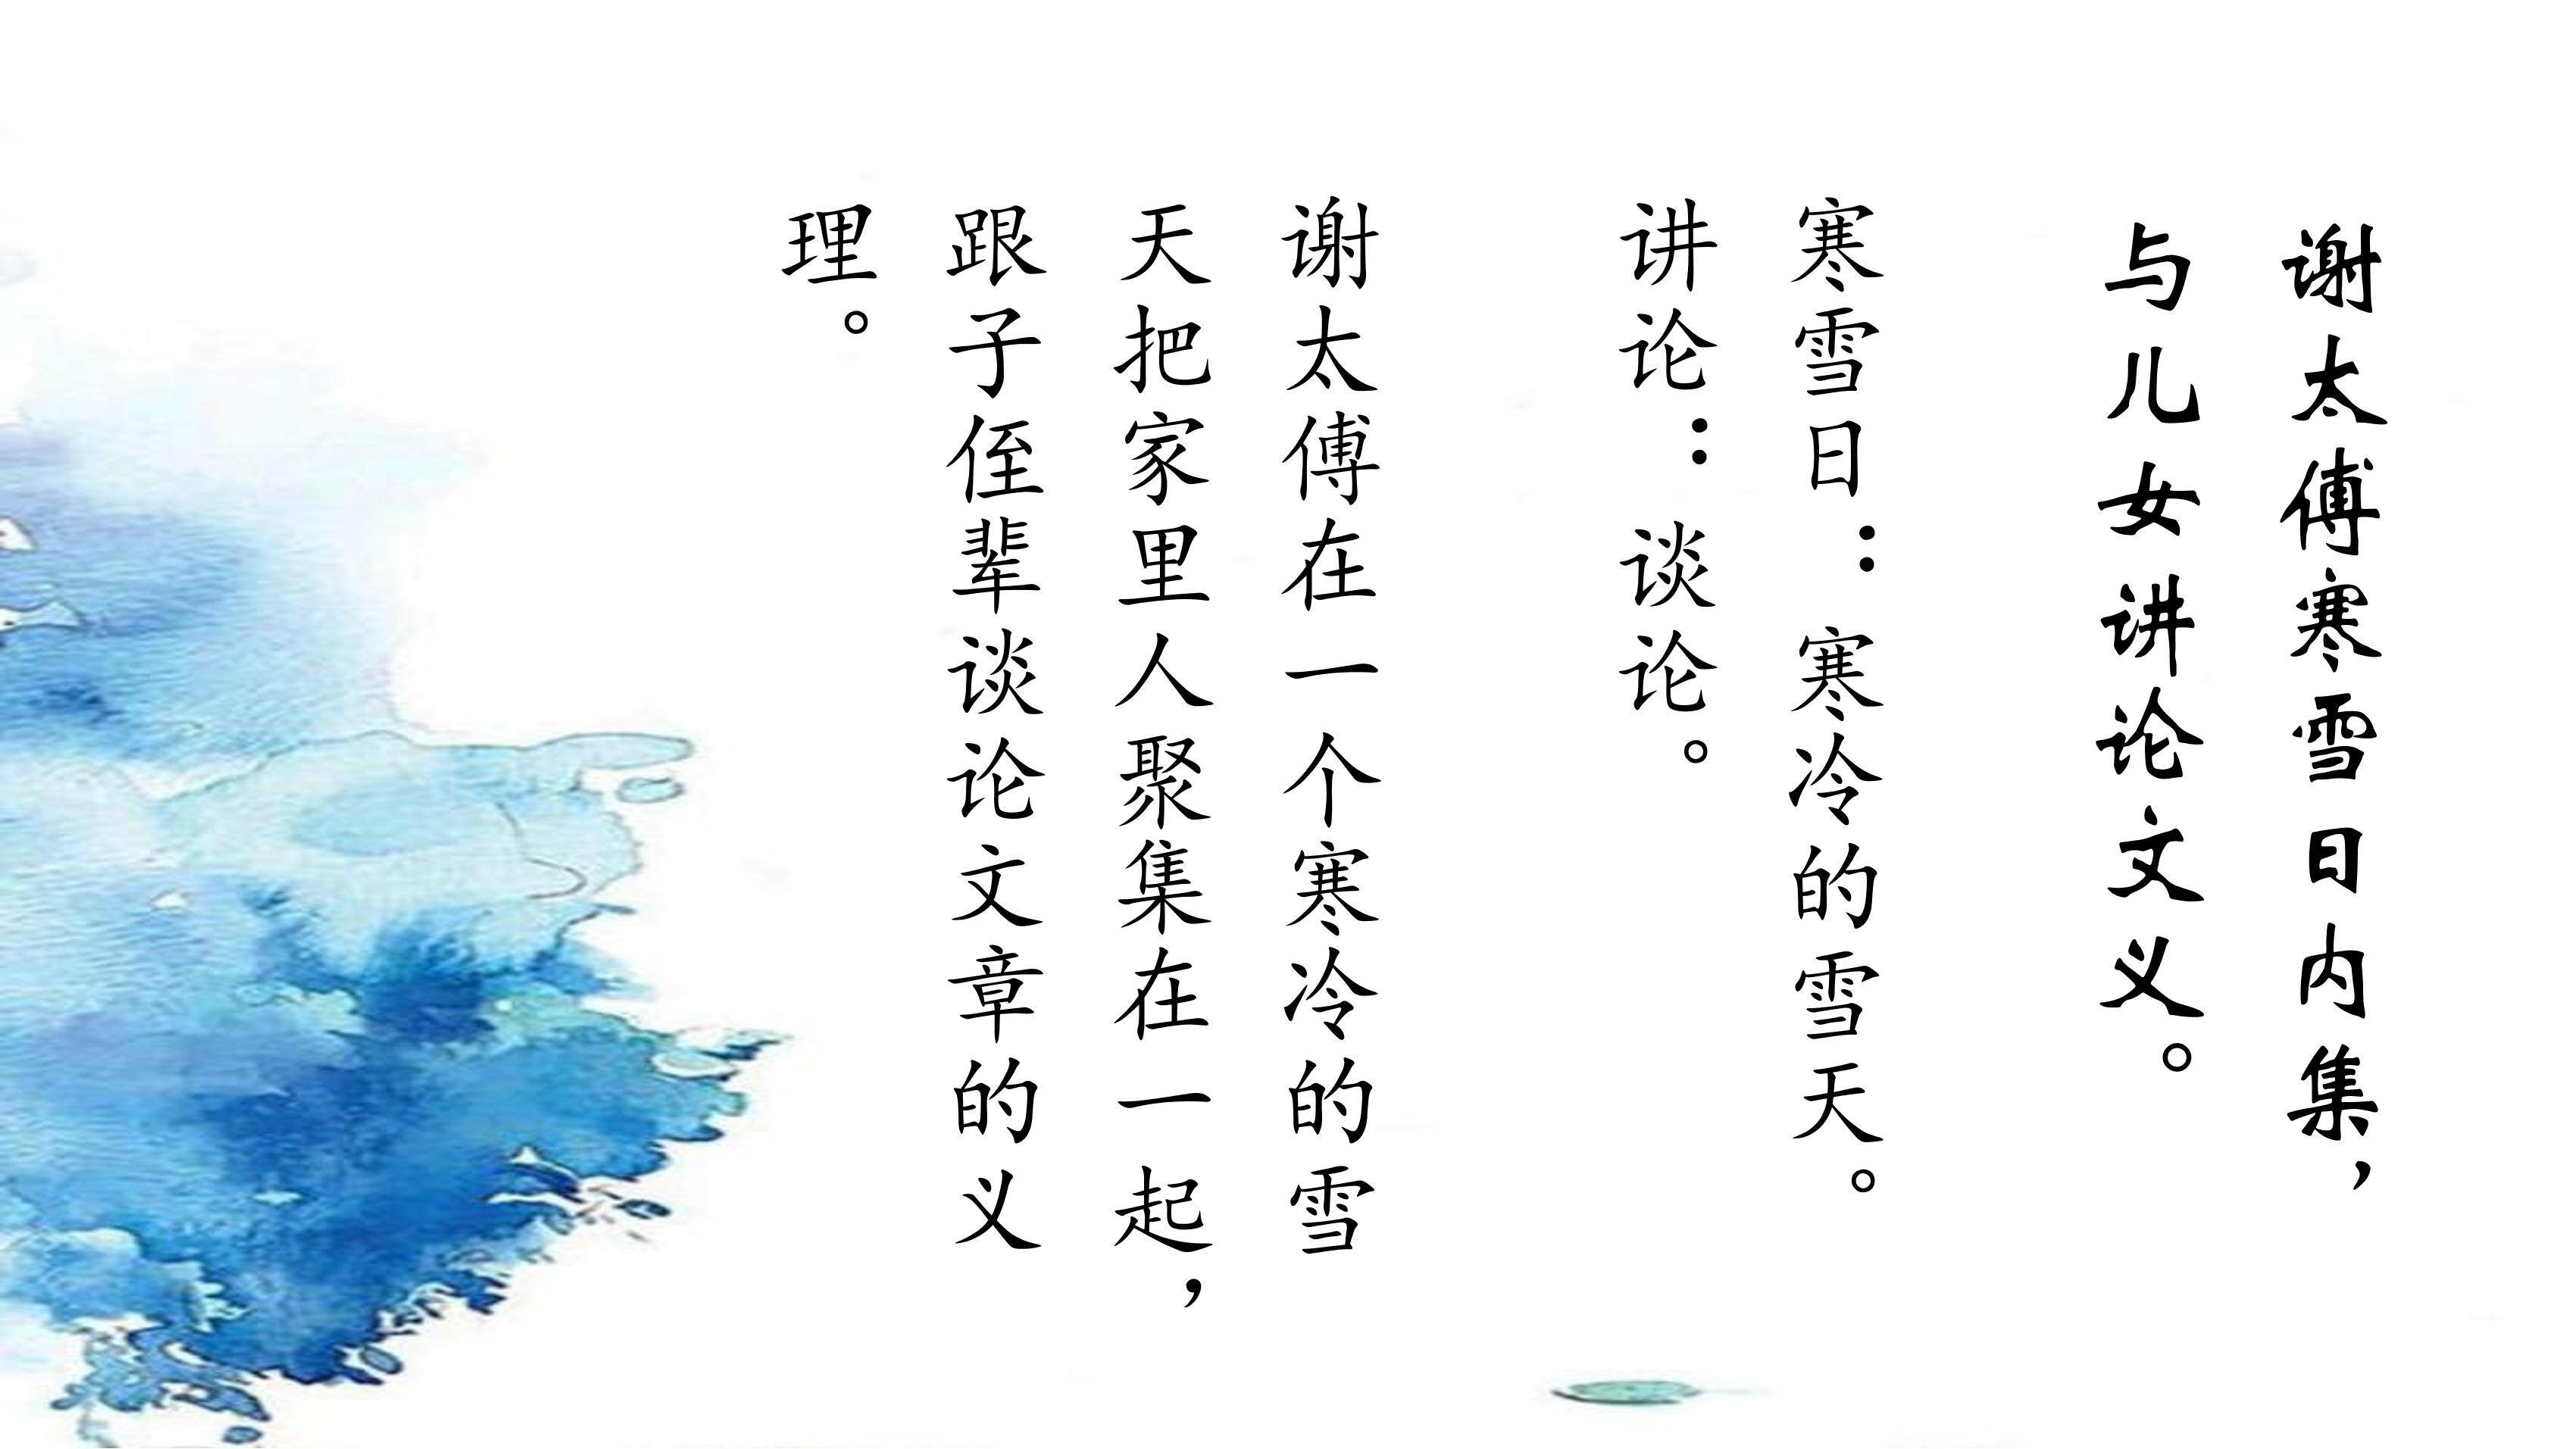 谢太傅寒雪日内集，
与儿女讲论文义。
寒雪日：寒冷的雪天。
讲论：谈论。
谢太傅在一个寒冷的雪
天把家里人聚集在一起，
跟子侄辈谈论文章的义
理。